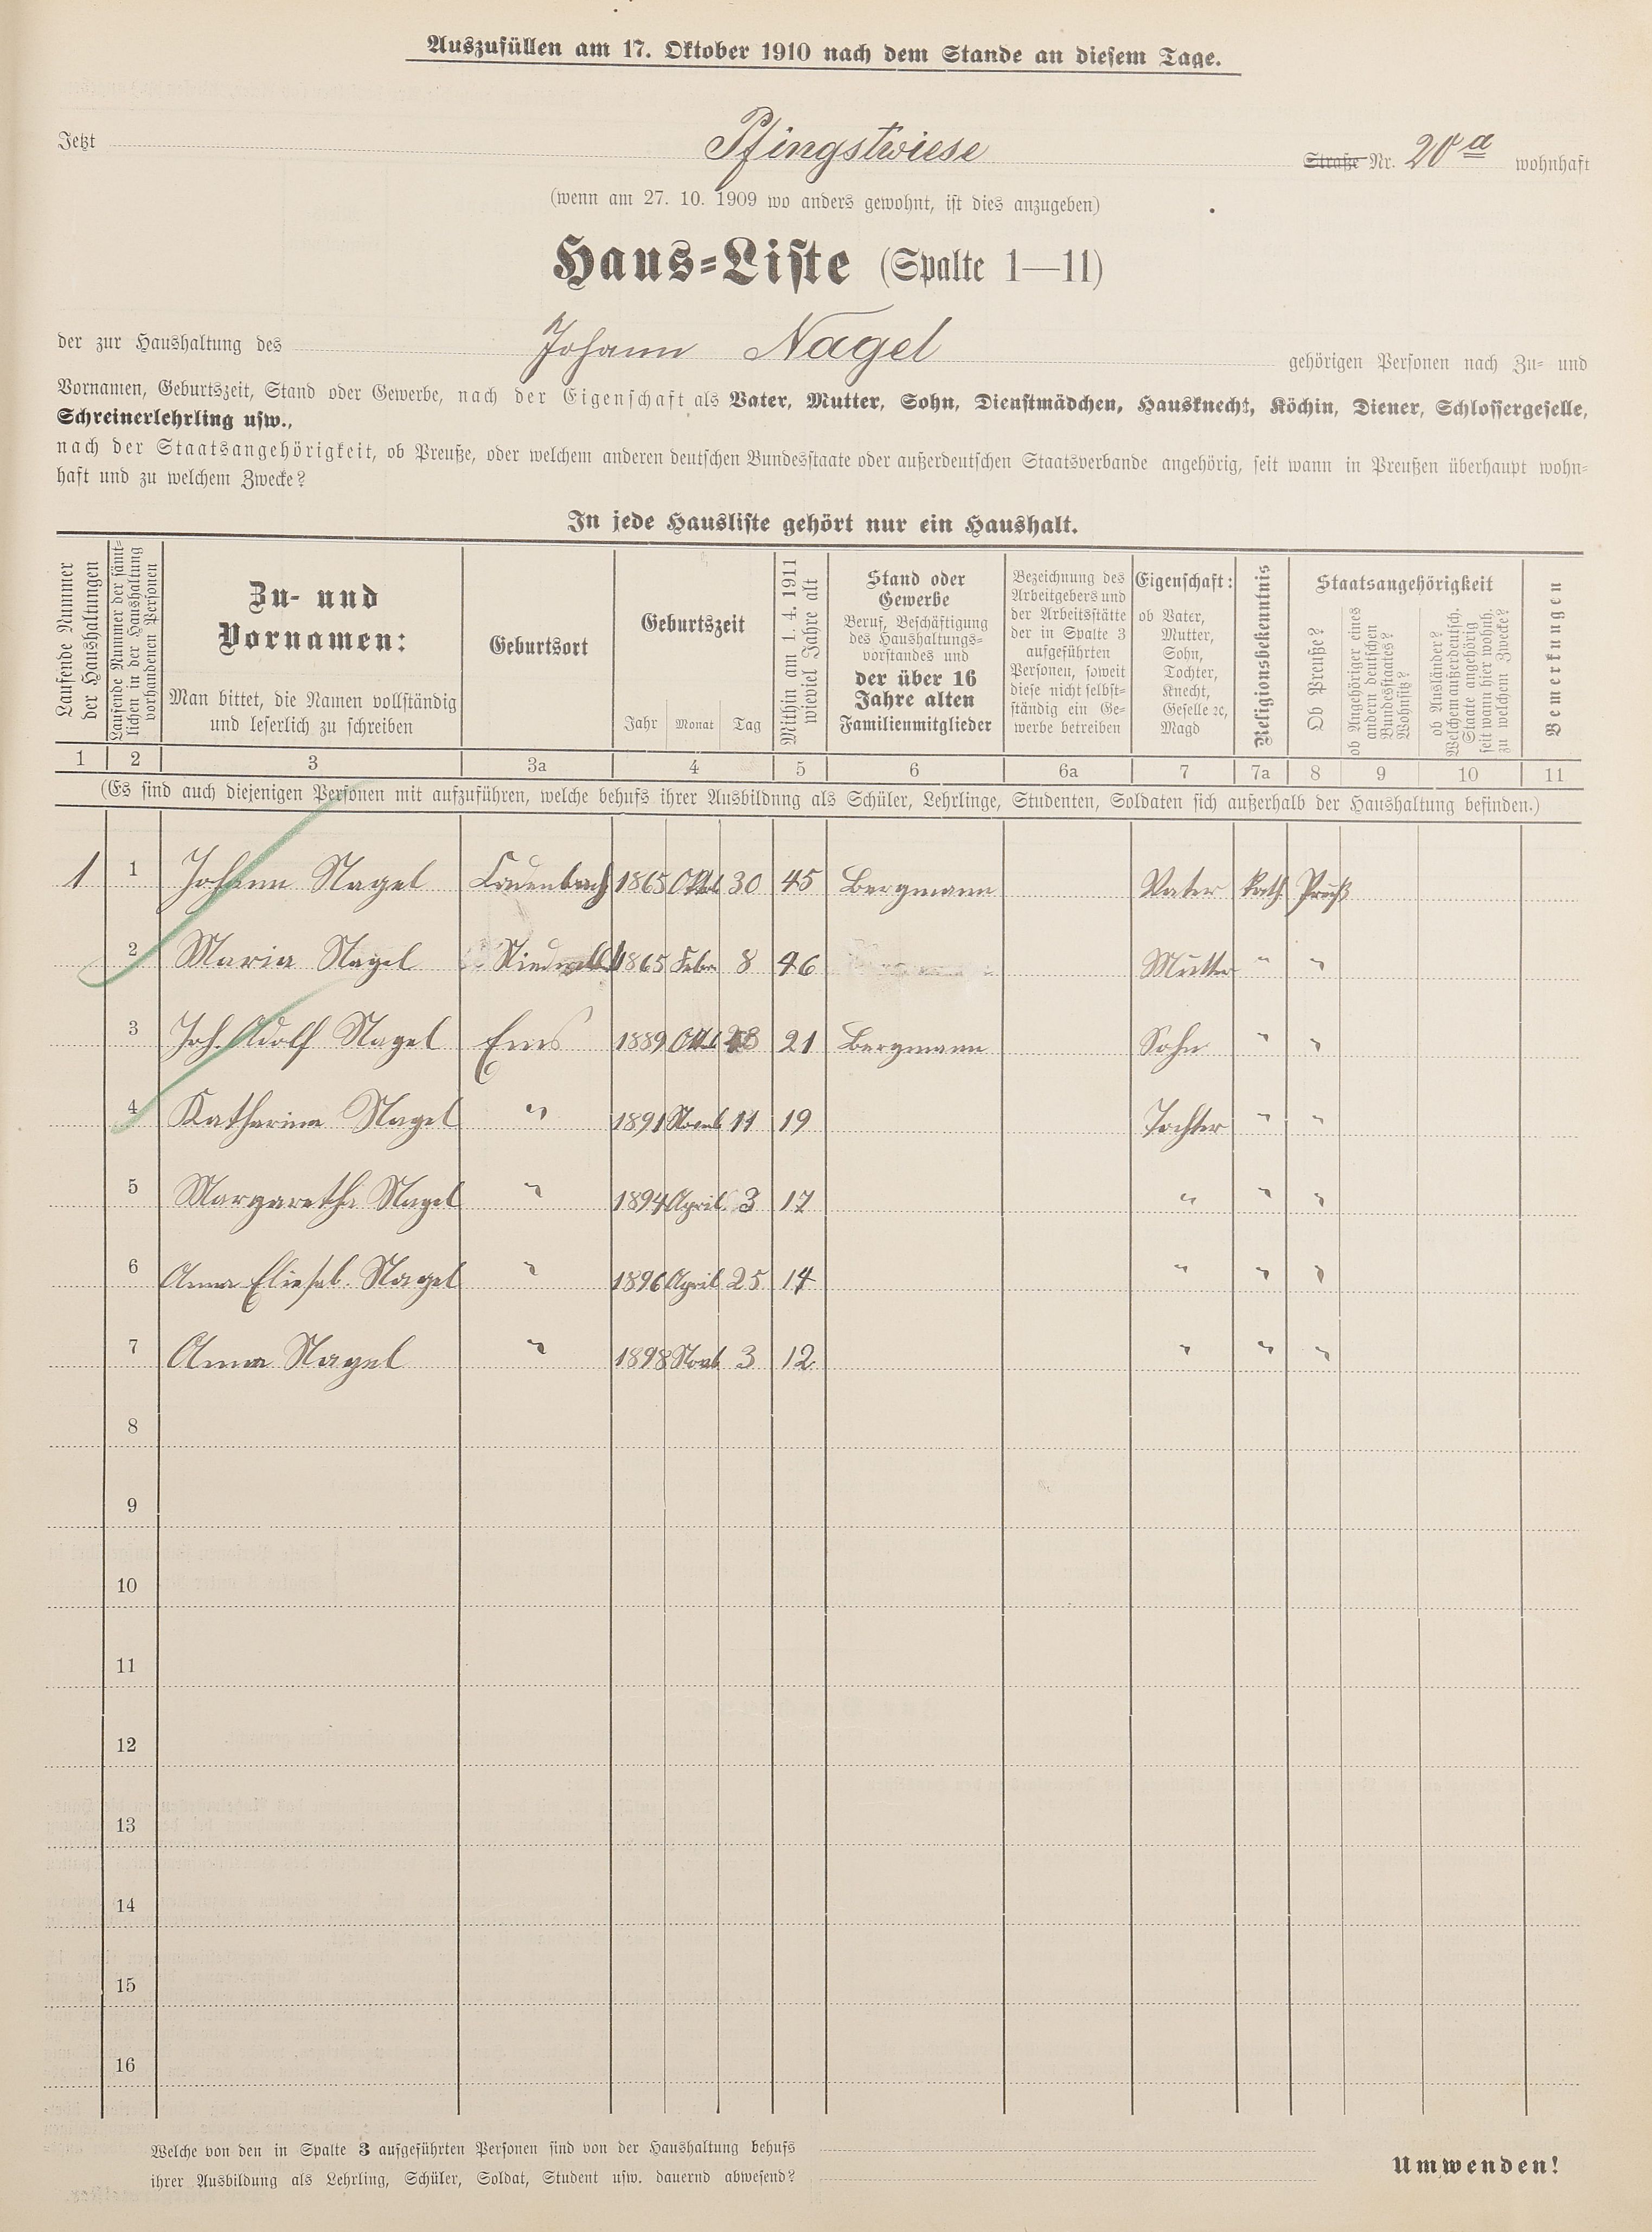 Auszufüllen am 17. Oktober 1910 nach dem Stande an diesem Tage.
Jetzt Pfingstwiese Straße Nr. 20a wohnhaft
(wenn am 27. 10. 1909 wo anders gewohnt, ist dies anzugeben)
Haus-Liste (Spalte 1—11)
der zur Haushaltung des Johann Nagel gehörigen Personen nach Zu- und
Vornamen, Geburtszeit, Stand oder Gewerbe, nach der Eigenschaft als Vater, Mutter, Sohn, Dienstmädchen, Hausknecht, Köchin, Diener, Schlossergeselle,
Schreinerlehrling usw.,
nach der Staatsangehörigkeit, ob Preuße, oder welchem anderen deutschen Bundesstaate oder außerdeutschen Staatsverbande angehörig, seit wann in Preußen überhaupt wohn-
haft und zu welchem Zwecke?
In jede Hausliste gehört nur ein Haushalt.
Laufende Nummer
der Haushaltungen
Laufende Nummer der sämt-
lichen in der Haushaltung
vorhandenen Personen
Zu- und
Vornamen:
Man bittet, die Namen vollständig
und leserlich zu schreiben
Geburtsort
Geburtszeit
Jahr Monat Tag
Mithin am 1. 4. 1911
wieviel Jahre alt
Stand oder
Gewerbe
Beruf, Beschäftigung
des Haushaltungs-
vorstandes und
der über 16
Jahre alten
Familienmitglieder
Bezeichnung des
Arbeitgebers und
der Arbeitsstätte
der in Spalte 3
aufgeführten
Personen, soweit
diese nicht selbst-
ständig ein Ge-
werbe betreiben
Eigenschaft:
ob Vater,
Mutter,
Sohn,
Tochter,
Knecht,
Geselle ꝛc,
Magd
Religionsbekenntnis
Staatsangehörigkeit
Ob Preuße?
ob Angehöriger eines
andern deutschen
Bundesstaates?
Wohnsitz?
ob Ausländer?
Welchem außerdeutsch.
Staate angehörig
seit wann hier wohnh.
zu welchem Zwecke?
Bemerkungen
1 2 3 3a 4 5 6 6a 7 7a 8 9 10 11
(Es sind auch diejenigen Personen mit aufzuführen, welche behufs ihrer Ausbildung als Schüler, Lehrlinge, Studenten, Soldaten sich außerhalb der Haushaltung befinden.)
1 1 Johann Nagel 1865 Oktob 30 45 Bergmann Vater kath. Preuß
2 Maria Nagel 1865 Febr 8 46 Mutter " "
3 Joh. Adolf Nagel Ems 1889 Oktob 21 Bergmann Sohn " "
4 Katharina Nagel " 1891 Novemb 11 19 Tochter " "
5 Margaretha Nagel " 1894 April 3 17 " " "
6 Anna Eliesab. Nagel " 1896 April 25 14 " " "
7 Anna Nagel " 1898 Novb 3 12 " " "
8
9
10
11
12
13
14
15
16
Welche von den in Spalte 3 aufgeführten Personen sind von der Haushaltung behufs
ihrer Ausbildung als Lehrling, Schüler, Soldat, Student usw. dauernd abwesend?
Umwenden!